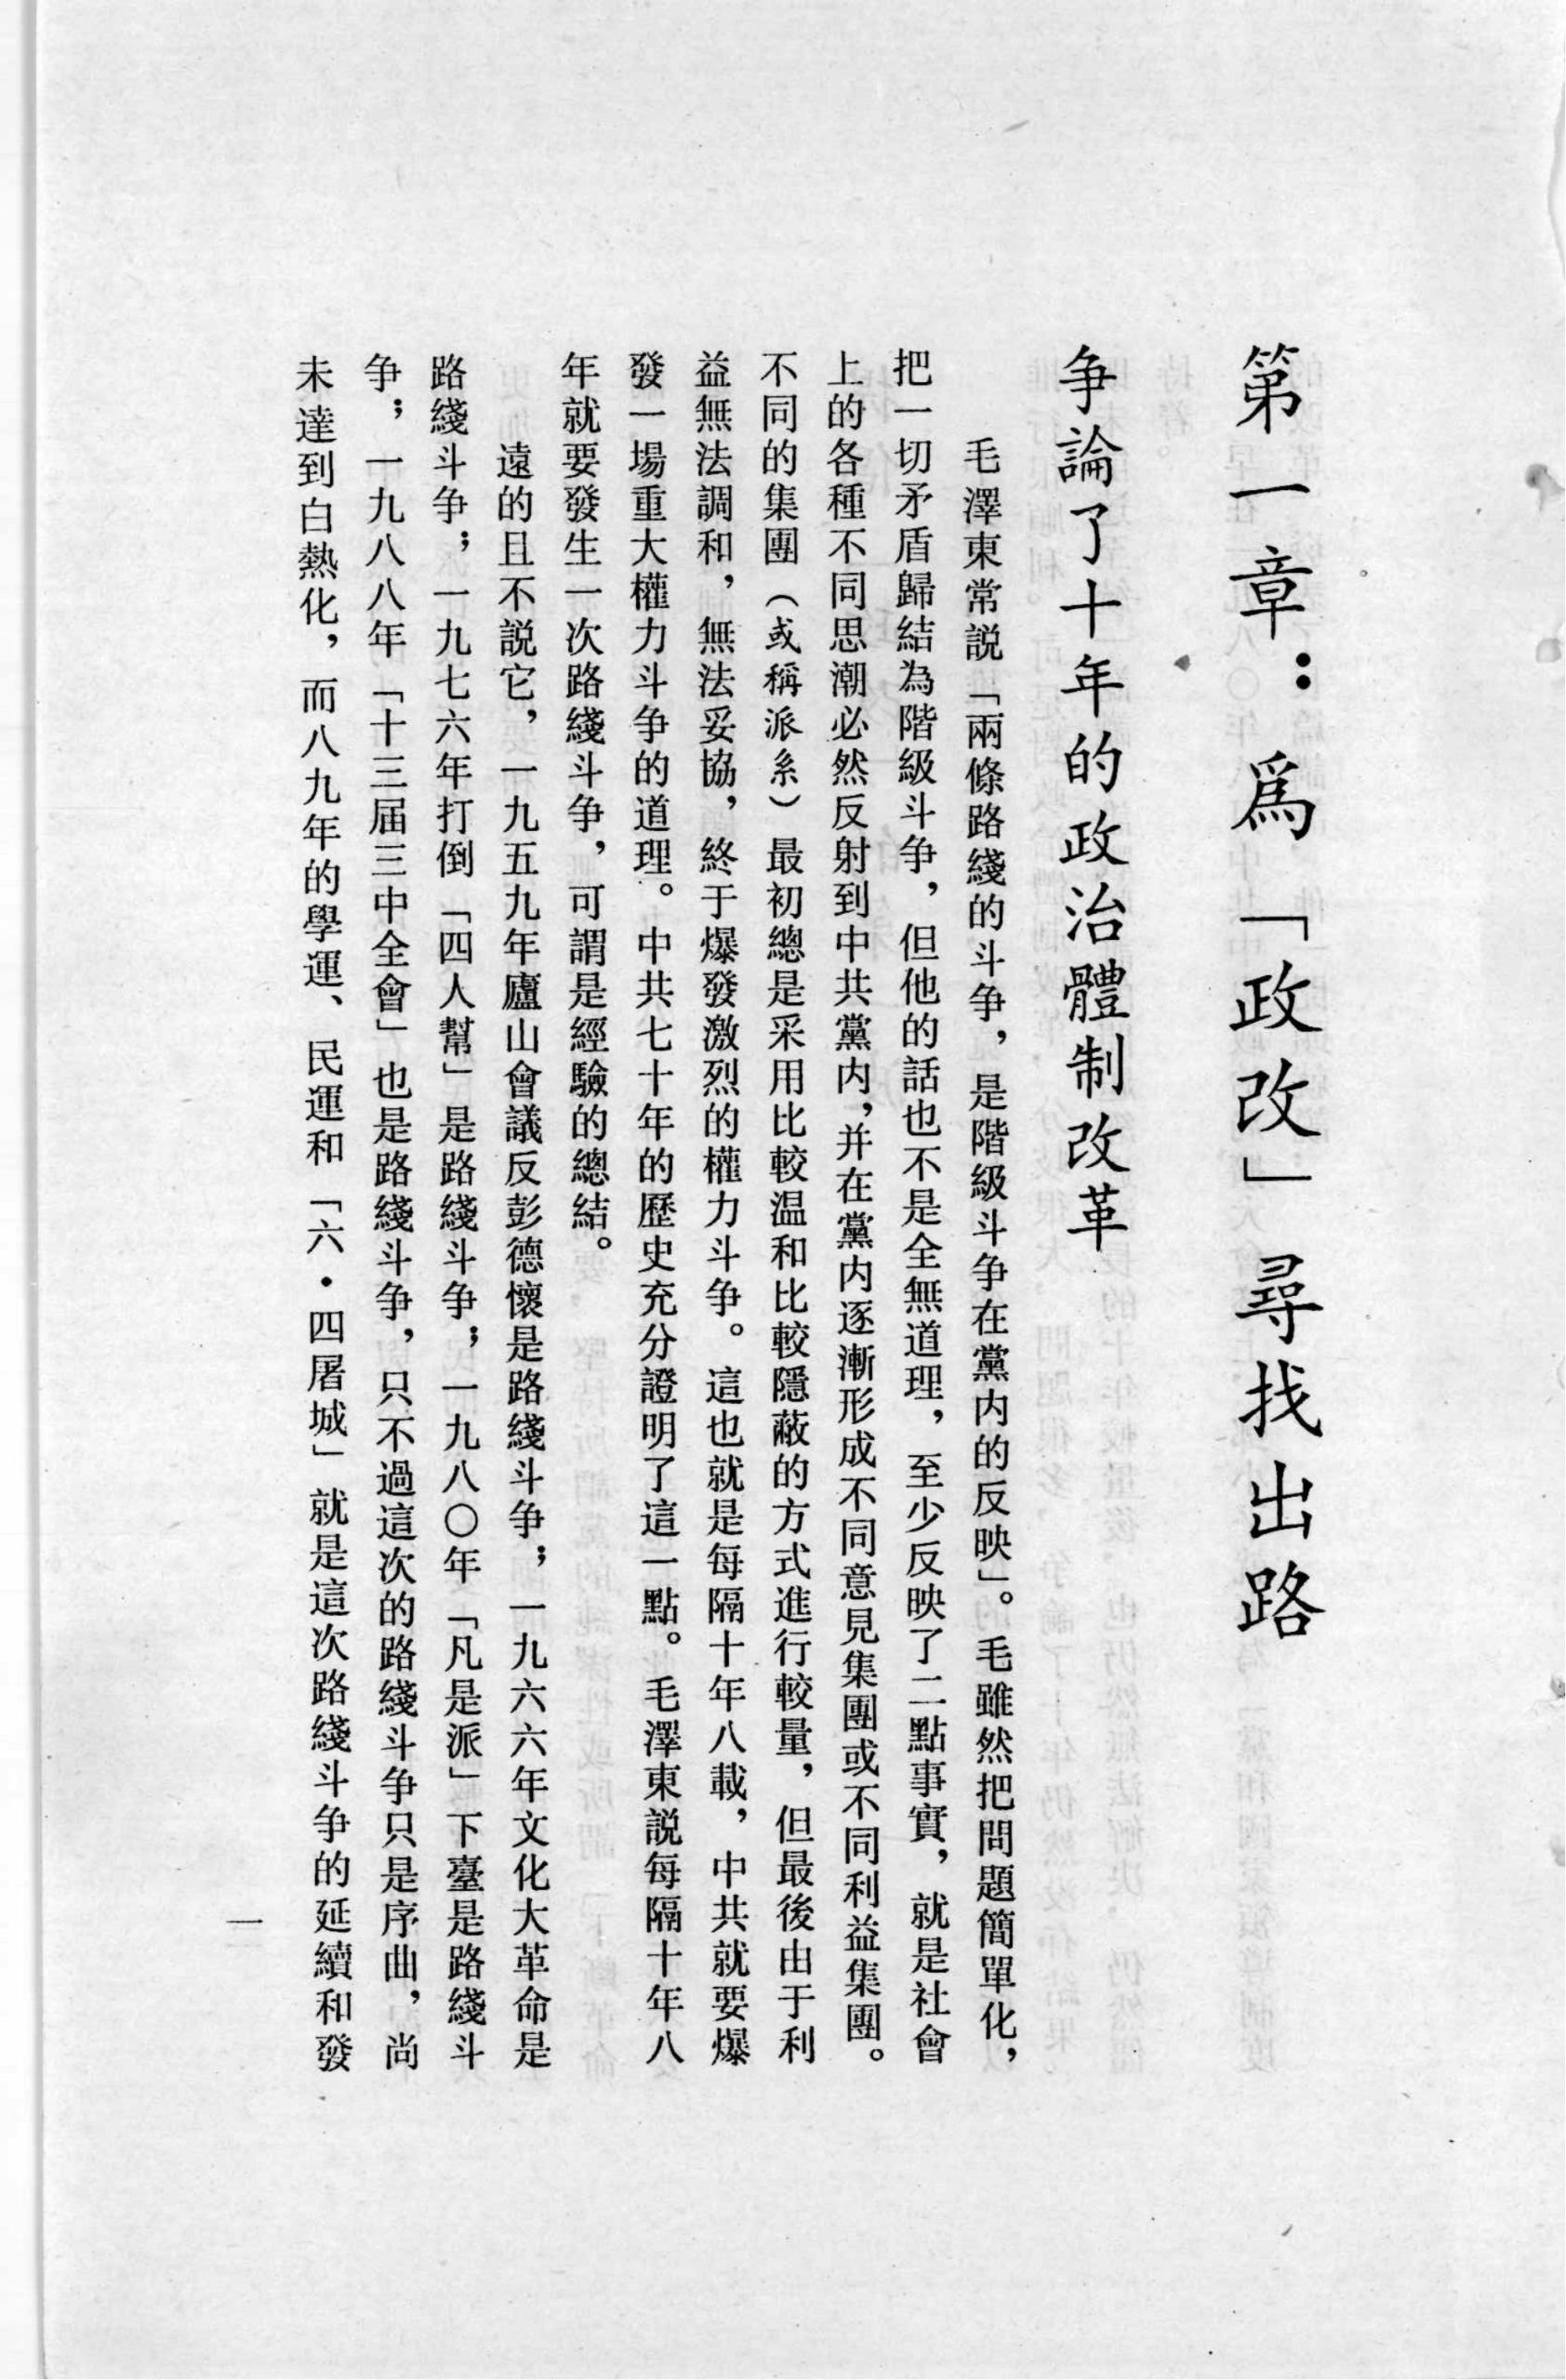 第一章：爲「政改」尋找出路
争論了十年的政治體制改革
毛澤東常説「兩條路綫的斗争，是階級斗争在黨内的反映」。毛雖然把問題簡單化，
把一切矛盾歸結為階級斗争，但他的話也不是全無道理，至少反映了二點事實，就是社會
上的各種不同思潮必然反射到中共黨内，并在黨内逐漸形成不同意見集團或不同利益集團。
不同的集團（或稱派系）最初總是采用比較温和比較隱蔽的方式進行較量，但最後由于利
益無法調和，無法妥協，終于爆發激烈的權力斗争。這也就是每隔十年八載，中共就要爆
發一場重大權力斗争的道理。中共七十年的歷史充分證明了這一點。毛澤東説每隔十年八
年就要發生一次路綫斗争，可謂是經驗的總結。
遠的且不説它，一九五九年廬山會議反彭德懷是路綫斗争；一九六六年文化大革命是
路綫斗争；一九七六年打倒「四人幫」是路綫斗争；一九八〇年「凡是派」下臺是路綫斗
争；一九八八年「十三届三中全會」也是路綫斗争，只不過這次的路綫斗争只是序曲，尚
未達到白熱化，而八九年的學運、民運和「六・四屠城」就是這次路綫斗争的延續和發
一